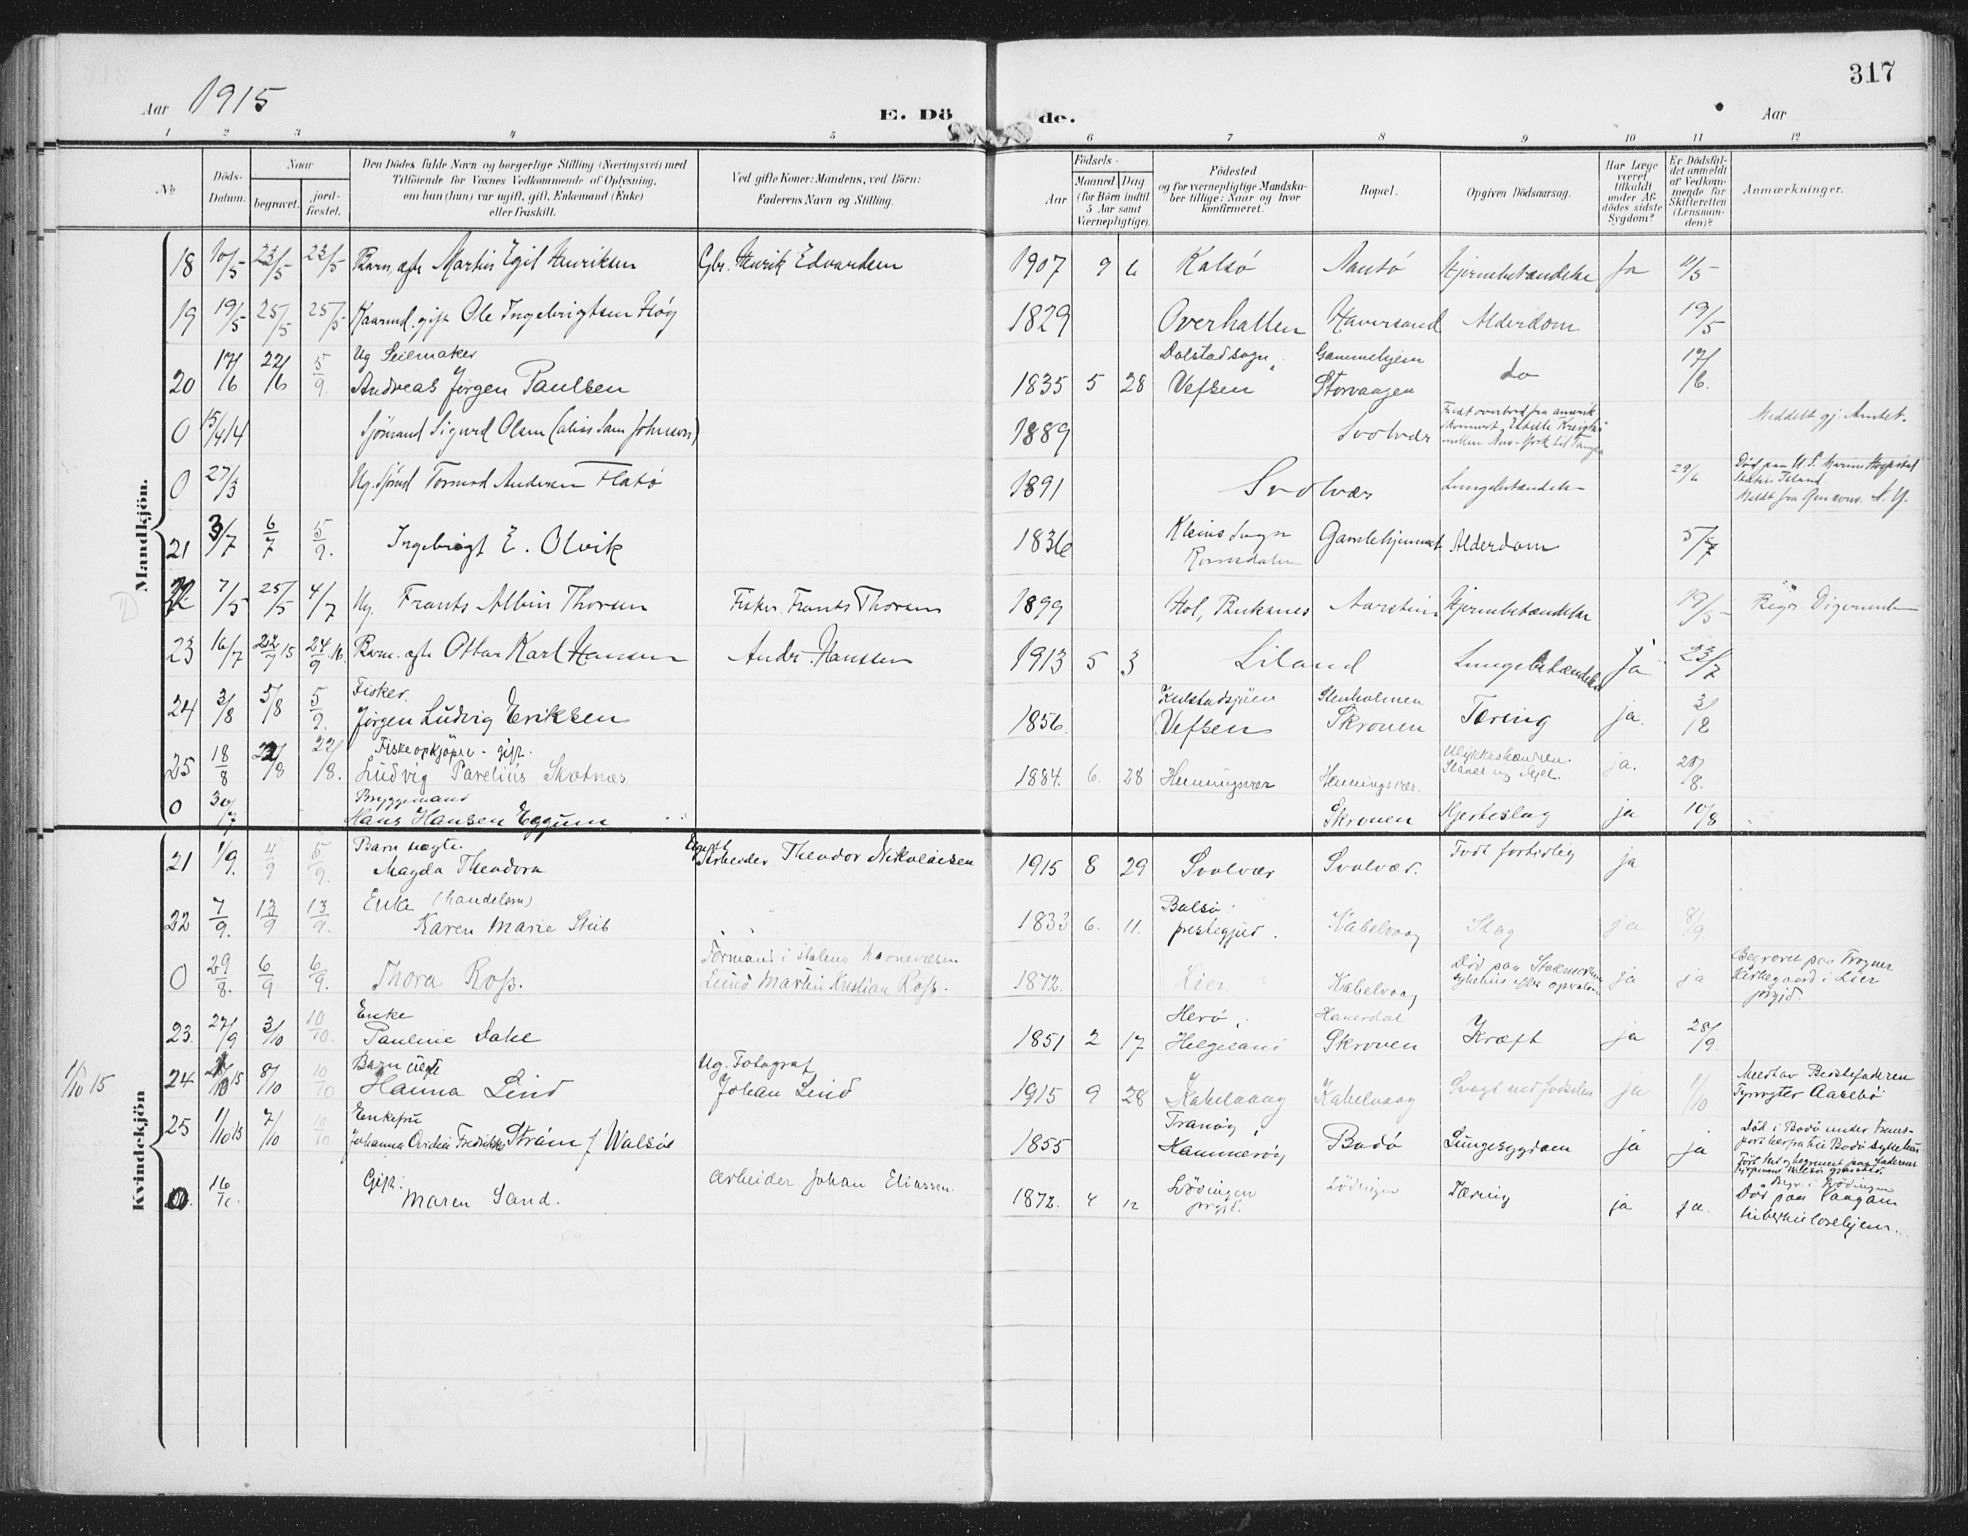 317
Aar 1915 E. Dö de. Aar
1 2 3 4 5 6 7 8 9 10 11 12
No
Döds-Datum.
Naar
begravet.
jord-fæstet.
Den Dödes fulde Navn og borgerlige Stilling (Næringsvei) med
Tilföiende for Voxnes Vedkommende af Oplysning,
om han (hun) var ugift, gift, Enkemand (Enke)
eller fraskilt.
Ved gifte Koner: Mandens, ved Börn:
Faderens Navn og Stilling.
Födsels-
Aar
Maaned Dag
(for Börn indtil
5 Aar samt
Værnepligtige).
Födested
og for værnepligtige Mandska-
ber tillige: Naar og hvor
konfirmeret.
Bopæl.
Opgiven Dödsaarsag.
Har Læge
været
tilkaldt
under Af-
dödes sidste
Sygdom?
Er Dödsfal-
det anmeldt
af Vedkom-
mende for
Skifteretten
(Lensman-
den)?
Anmærkninger.
Mandkjön.
18 10/5 23/5 23/5 Barn, ægte Martin Egil Henriksen Gbr. Henrik Edvardsen 1907 9 6 Kalsø Hjernebetændelse Ja 11/5
19 19/5 25/5 25/5 Kaarmd. gift Ole Ingebrigtsen Høg 1829 Overhallen Haversand Alderdom 19/5
Ug Seilmaker Dolstad sogn, Gammelhjem
20 17/6 22/6 5/9 Andreas Jørgen Paulsen 1835 5 28 Vefsen Storvaagen do 17/6.
0 15/4 14 Sjømand Sigurd Olsen (alias Sam Johnson) 1889 Svolvær
Faldt overbord fra amerik.
mellem New-York til Tampa
Meddelt gj. Amtet.
0 27/3 Ug. Sjømd Tormod Andersen Flatø 1891 Svolvær Lungebetændelse 29/6
Død paa U. S. Marine Hospital
Meldt fra N. Y.
21 3/7 6/7 5/9. Ingebrigt E. Olvik 1836 Kleius sogn Romsdalen Gamlehjemmet Alderdom 5/7
22 7/5 25/5 4/7 Ug. Frants Albin Thorsen Fisker Frants Thorsen 1899 Hol, Buksnes Hjernebetændelse 19/5 Digermulen
23 16/7 22/7 15 24/9 16. Barn, ægte Ottar Karl Hansen Andr. Hanssen 1913 5 3 Liland Lungebetændelse Ja 23/7
Fisker. Kulstadsjøen Stenholmen
24 3/8 5/8 5/9. Jørgen Ludvig Eriksen 1856 Vefsen Skroven Tæring ja. 3/8
Fiskeopkjøper - gift.
25 18/8 22/8 22/8. Ludvig Parelius Skotnæs 1884. 6. 28 Henningsvær Henningsvær. ja. 20/8.
Bryggemand
0 30/7 Hans Hansen Eggum Skroven Hjerteslag ja 10/8
Kvindekjön
Barn uægte.
21 1/9. 4/9 5/9. Magda Theodora Arbeider Theodor Nikolaisen 1915 8 29 Svolvær Svolvær. Født fortidlig ja
Enke (handelsm)
22 7/9. 13/9 13/9. Karen Marie Stub 1833 6. 11. Balsø prestegjeld. Kabelvaag Slag ja 8/9.
Formand i statens havnevæsen
0 29/8. 6/9 6/9. Thora Ross. Martin Kristian Ross. 1872. Lier. Kabelvaag
Død paa
sykehus efter operation
ja ja
Begravet paa Frogner
kirkegaard i Lier
prgjd.
Enke Herø,
23. 27/9 3/10 10/10. Pauline Dahl 1851 2 17 Helgeland Skroven Kræft ja 28/9.
Barn uægte Ug. Fotograf
1/10 15 24 10 15 8/10 10/10 Hanna Lind Johan Lind 1915 9 28 Kabelvaag Kabelvaag Svagt ved fødselen ja 1/10
Meldt av Bedstefaderen
Fyrvogter Aarebø
Enkefru Tranøy,
25 1/10 15 7/10 10/10 Johanna Ovidia Fredrikke Strøm f Walsøe 1855 Hammerøy Bodø Lungesygdom ja ja
Død i Bodø under Trans-
port herfra til Bodø sykehus
Gift:
0. 16/10 Maren Sand. Arbeider Johan Eliassen. 1872. 4 12 Lødingen prgjd. Lødingen Tæring ja ja.
Begr. i Lødingen
Død paa Vaagan
tuberkulosehjem.